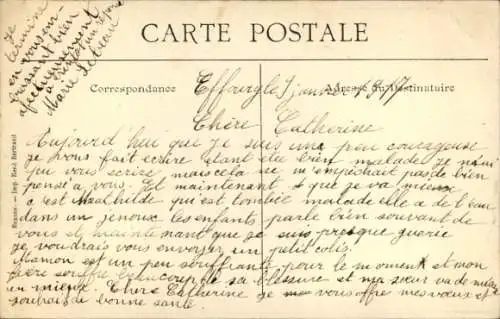 CARTE POSTALE
Correspondance
Adresse du Destinataire
Effourgle 1 janvier 1917
Chère Catherine
Aujord heui que je suis une peu courageuse
je vous fait écrire étant été bien malade je n'ai
pu vous écrire mais cela ne m'empêchait pas de bien
pensé a vous. Et maintenant que je va mieux
c'est Mathilde qui est tombée malade elle a de l'eau
dans un jenoux les enfants parle bien souvant de
vous et maintenant que je suis presque guerie
je voudrais vous envoyer un petit colis.
Maman est un peu souffrante pour le moment et mon
frère souffre beaucoup de sa blessure et ma sœur va de mieux
en mieux. Chère Catherine je vous offre mes vœux et
souhais de bonne santé.
Je
termine
en vous em-
brassant bien
afectueusement
Marie Lebeau
Imp. René Bertrand